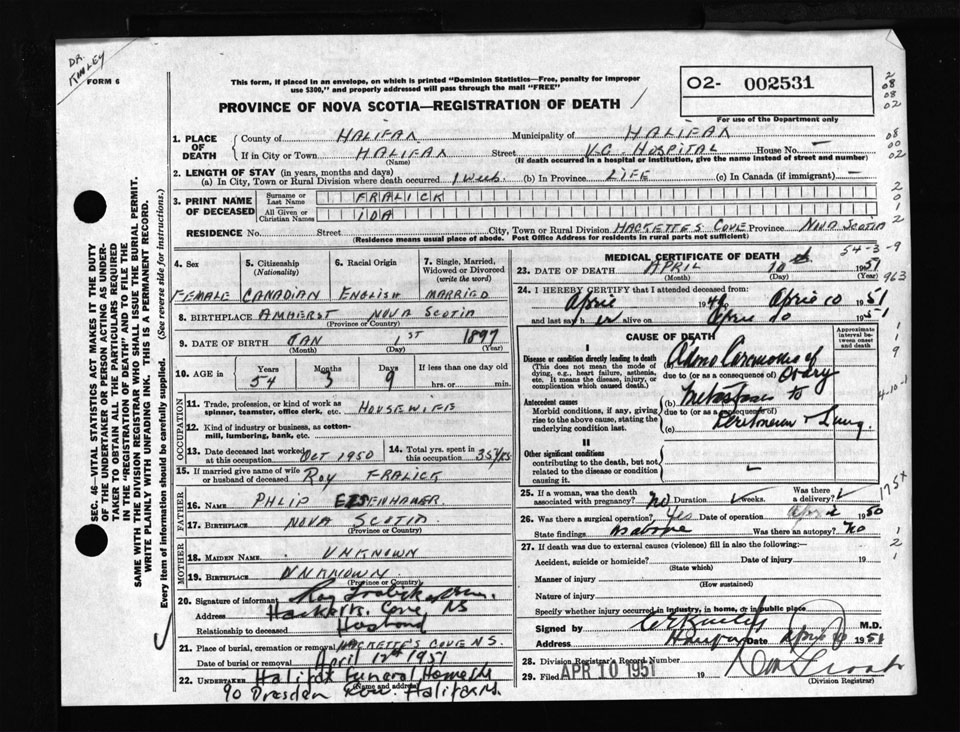 DR. KINLEY
FORM 6
This form, if placed in an envelope, on which is printed "Dominion Statistics—Free, penalty for improper
use $300," and properly addressed will pass through the mail "FREE"
O2- 002531
For use of the Department only
PROVINCE OF NOVA SCOTIA—REGISTRATION OF DEATH
1. PLACE OF DEATH
County of HALIFAX Municipality of HALIFAX
If in City or Town HALIFAX Street V.G. HOSPITAL House No. —
(Name) (If death occurred in a hospital or institution, give the name instead of street and number)
2. LENGTH OF STAY (in years, months and days)
(a) In City, Town or Rural Division where death occurred 1 week (b) In Province LIFE (c) In Canada (if immigrant) —
3. PRINT NAME OF DECEASED
Surname or Last Name FRALICK
All Given or Christian Names IDA
RESIDENCE No. Street City, Town or Rural Division HACKETTE'S COVE Province NOVA SCOTIA
(Residence means usual place of abode. Post Office Address for residents in rural parts not sufficient)
4. Sex FEMALE
5. Citizenship (Nationality) CANADIAN
6. Racial Origin ENGLISH
7. Single, Married, Widowed or Divorced (write the word) MARRIED
8. BIRTHPLACE AMHERST NOVA SCOTIA
(Province or Country)
9. DATE OF BIRTH JAN 1st 1897
(Month) (Day) (Year)
10. AGE Years 54 Months 3 Days 9 If less than one day old hrs. or min.
OCCUPATION
11. Trade, profession, or kind of work as spinner, teamster, office clerk, etc. HOUSEWIFE
12. Kind of industry or business, as cotton-mill, lumbering, bank, etc.
13. Date deceased last worked at this occupation OCT 1950
14. Total yrs. spent in this occupation 35 yrs.
15. If married give name of wife or husband of deceased ROY FRALICK
FATHER
16. NAME PHLIP EISENHAWER
17. BIRTHPLACE NOVA SCOTIA
MOTHER
18. MAIDEN NAME UNKNOWN
19. BIRTHPLACE UNKNOWN
(Province or Country)
20. Signature of informant Roy Fralick
Address Hacketts Cove NS
Relationship to deceased Husband
21. Place of burial, cremation or removal HACKETTE'S COVE N.S.
Date of burial or removal April 12th 1951
22. UNDERTAKER Halifax Funeral Home Ltd
(Name and address)
90 Dresden Row Halifax
MEDICAL CERTIFICATE OF DEATH
54-3-9
23. DATE OF DEATH APRIL 10 1951
(Month) (Day) (Year)
24. I HEREBY CERTIFY that I attended deceased from:
April 19 to April 10 1951
and last saw her alive on April 10 1951
CAUSE OF DEATH
Approximate interval between onset and death
I
Disease or condition directly leading to death
(This does not mean the mode of dying, e.g., heart failure, asthenia, etc. It means the disease, injury, or complication which caused death.)
(a) Adeno Carcinoma of
due to (or as a consequence of) Ovary
Antecedent causes
Morbid conditions, if any, giving rise to the above cause, stating the underlying condition last.
(b) Metastases to
due to (or as a consequence of)
(c) Peritoneum + Lung.
II
Other significant conditions
contributing to the death, but not related to the disease or condition causing it.
25. If a woman, was the death associated with pregnancy? No Duration weeks. Was there a delivery?
26. Was there a surgical operation? Yes Date of operation April 1950
State findings as above Was there an autopsy? No
27. If death was due to external causes (violence) fill in also the following:—
Accident, suicide or homicide? Date of injury 19
(State which)
Manner of injury
(How sustained)
Nature of injury
Specify whether injury occurred in industry, in home, or in public place
Signed by M.D.
Address Halifax Date April 10 1951
28. Division Registrar's Record Number
29. Filed APR 10 1951 19
(Division Registrar)
SEC. 46—VITAL STATISTICS ACT MAKES IT THE DUTY
OF THE UNDERTAKER OR PERSON ACTING AS UNDER-
TAKER TO OBTAIN ALL THE PARTICULARS REQUIRED
IN THE "REGISTRATION OF DEATH" AND TO FILE THE
SAME WITH THE DIVISION REGISTRAR WHO SHALL ISSUE THE BURIAL PERMIT.
WRITE PLAINLY WITH UNFADING INK. THIS IS A PERMANENT RECORD.
Every item of information should be carefully supplied. (See reverse side for instructions.)